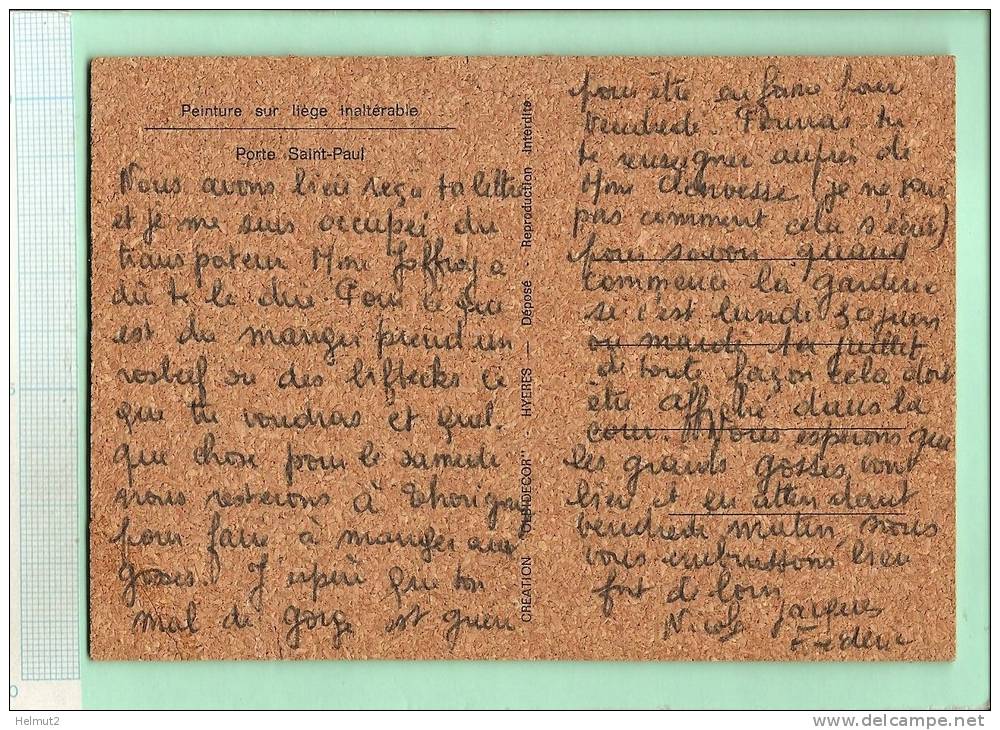 Peinture sur liège inaltérable
Porte Saint-Paul
Nous avons bien reçu ta lettre
et je me suis occupé du
transpateur Mme Joffroy a
dû te le dire Pour ce que
est du manger prend un
rosbeef ou des biftecks ce
que tu voudras et quel-
que chose pour le samedi
nous resterons à Thorigné
pour faire à manger aux
gosses. J'espère que ton
mal de gorge est guéri
CREATION "OLBIDECOR" - HYERES - Déposé - Reproduction interdite
pour être en famille pour
Vendredi. Pourras tu
te renseigner auprès de
Mme (je ne sais
pas comment cela s'écrit)
pour savoir quand
commence la garderie
si c'est lundi 30 juin
ou mardi 1er juillet
de toute façon cela doit
être affiché dans la
cour. Nous espérons que
les grands gosses vont
bien et en attendant
vendredi matin nous
vous embrassons bien
fort de loin
Nicole Jacques
Frédéric
Helmut2
www.delcampe.net